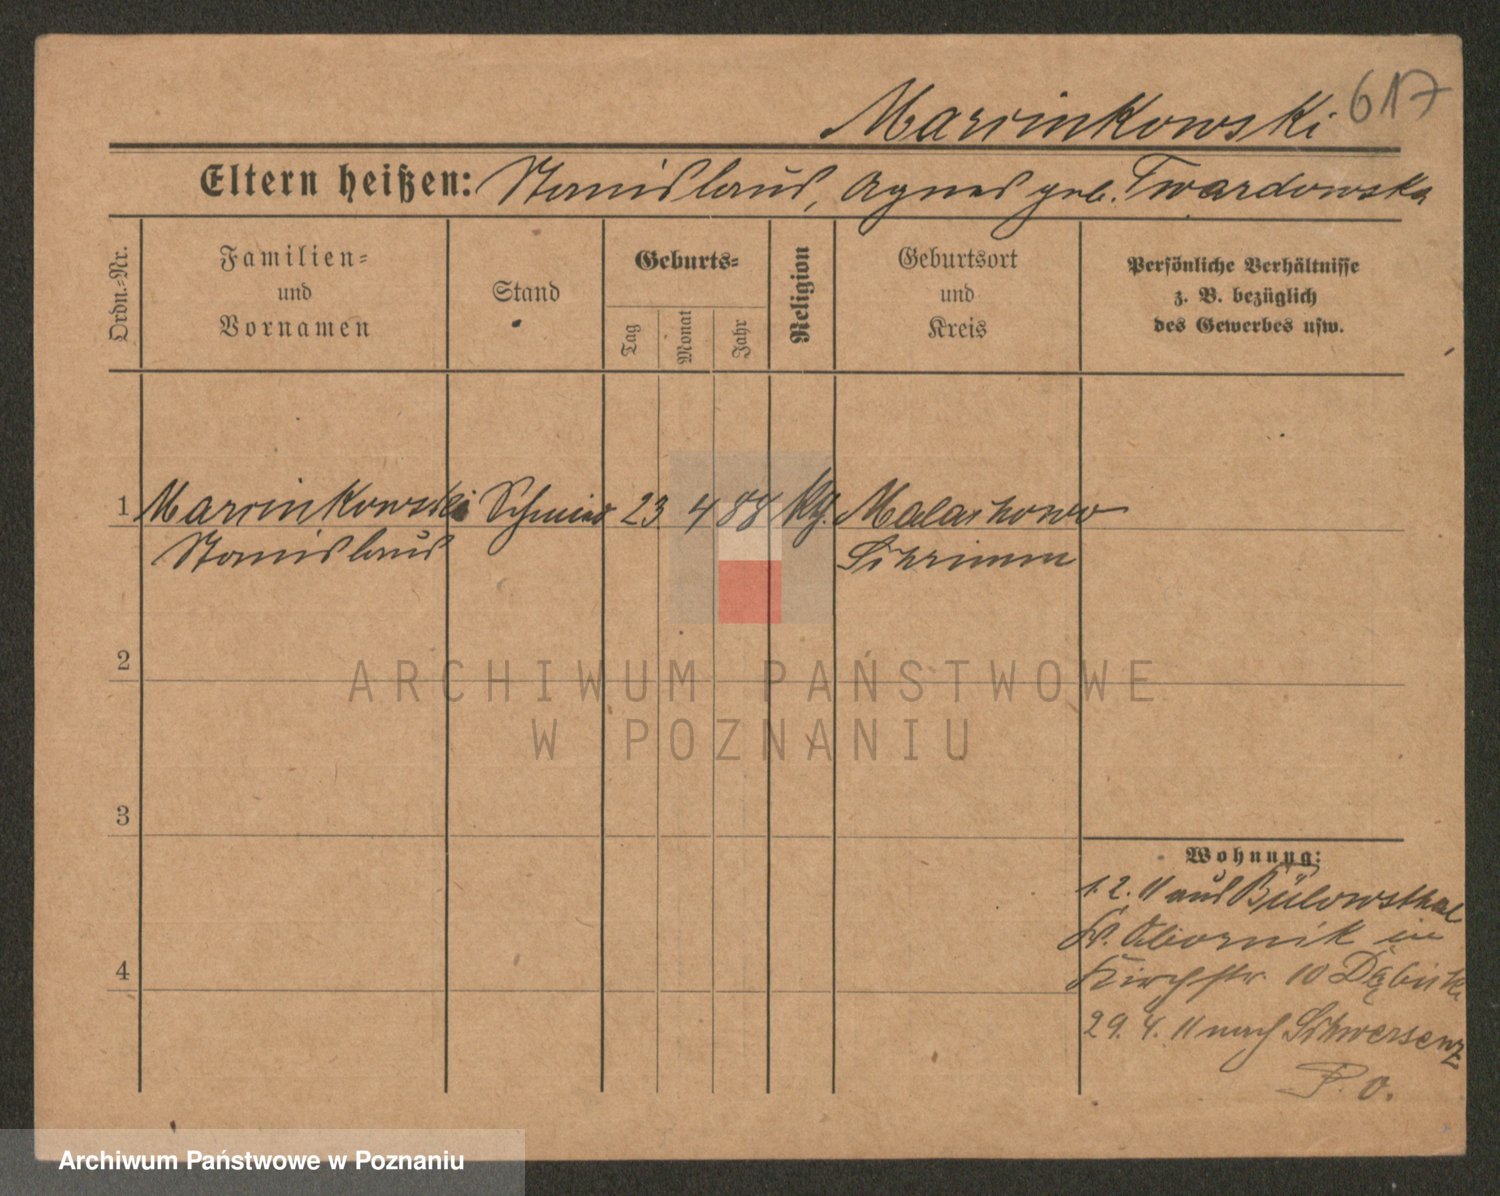 Marcinkowski 617
Eltern heißen: Stanislaus, Agnes geb. Twardowska
Ordn.=Nr.
Familien=
und
Vornamen
Stand
Geburts=
Tag
Monat
Jahr
Religion
Geburtsort
und
Kreis
Persönliche Verhältnisse
z. B. bezüglich
des Gewerbes usw.
1 Marcinkowski Schmied 23 4 88 kth. Malachowo
Stanislaus Schrimm
2
ARCHIWUM PAŃSTWOWE
W POZNANIU
3
Wohnung:
1. 2. 11 aus Bülowsthal
Kr. Obornik in
4
Kirchstr. 10
29. 4. 11 nach Schwersenz
P. O.
Archiwum Państwowe w Poznaniu